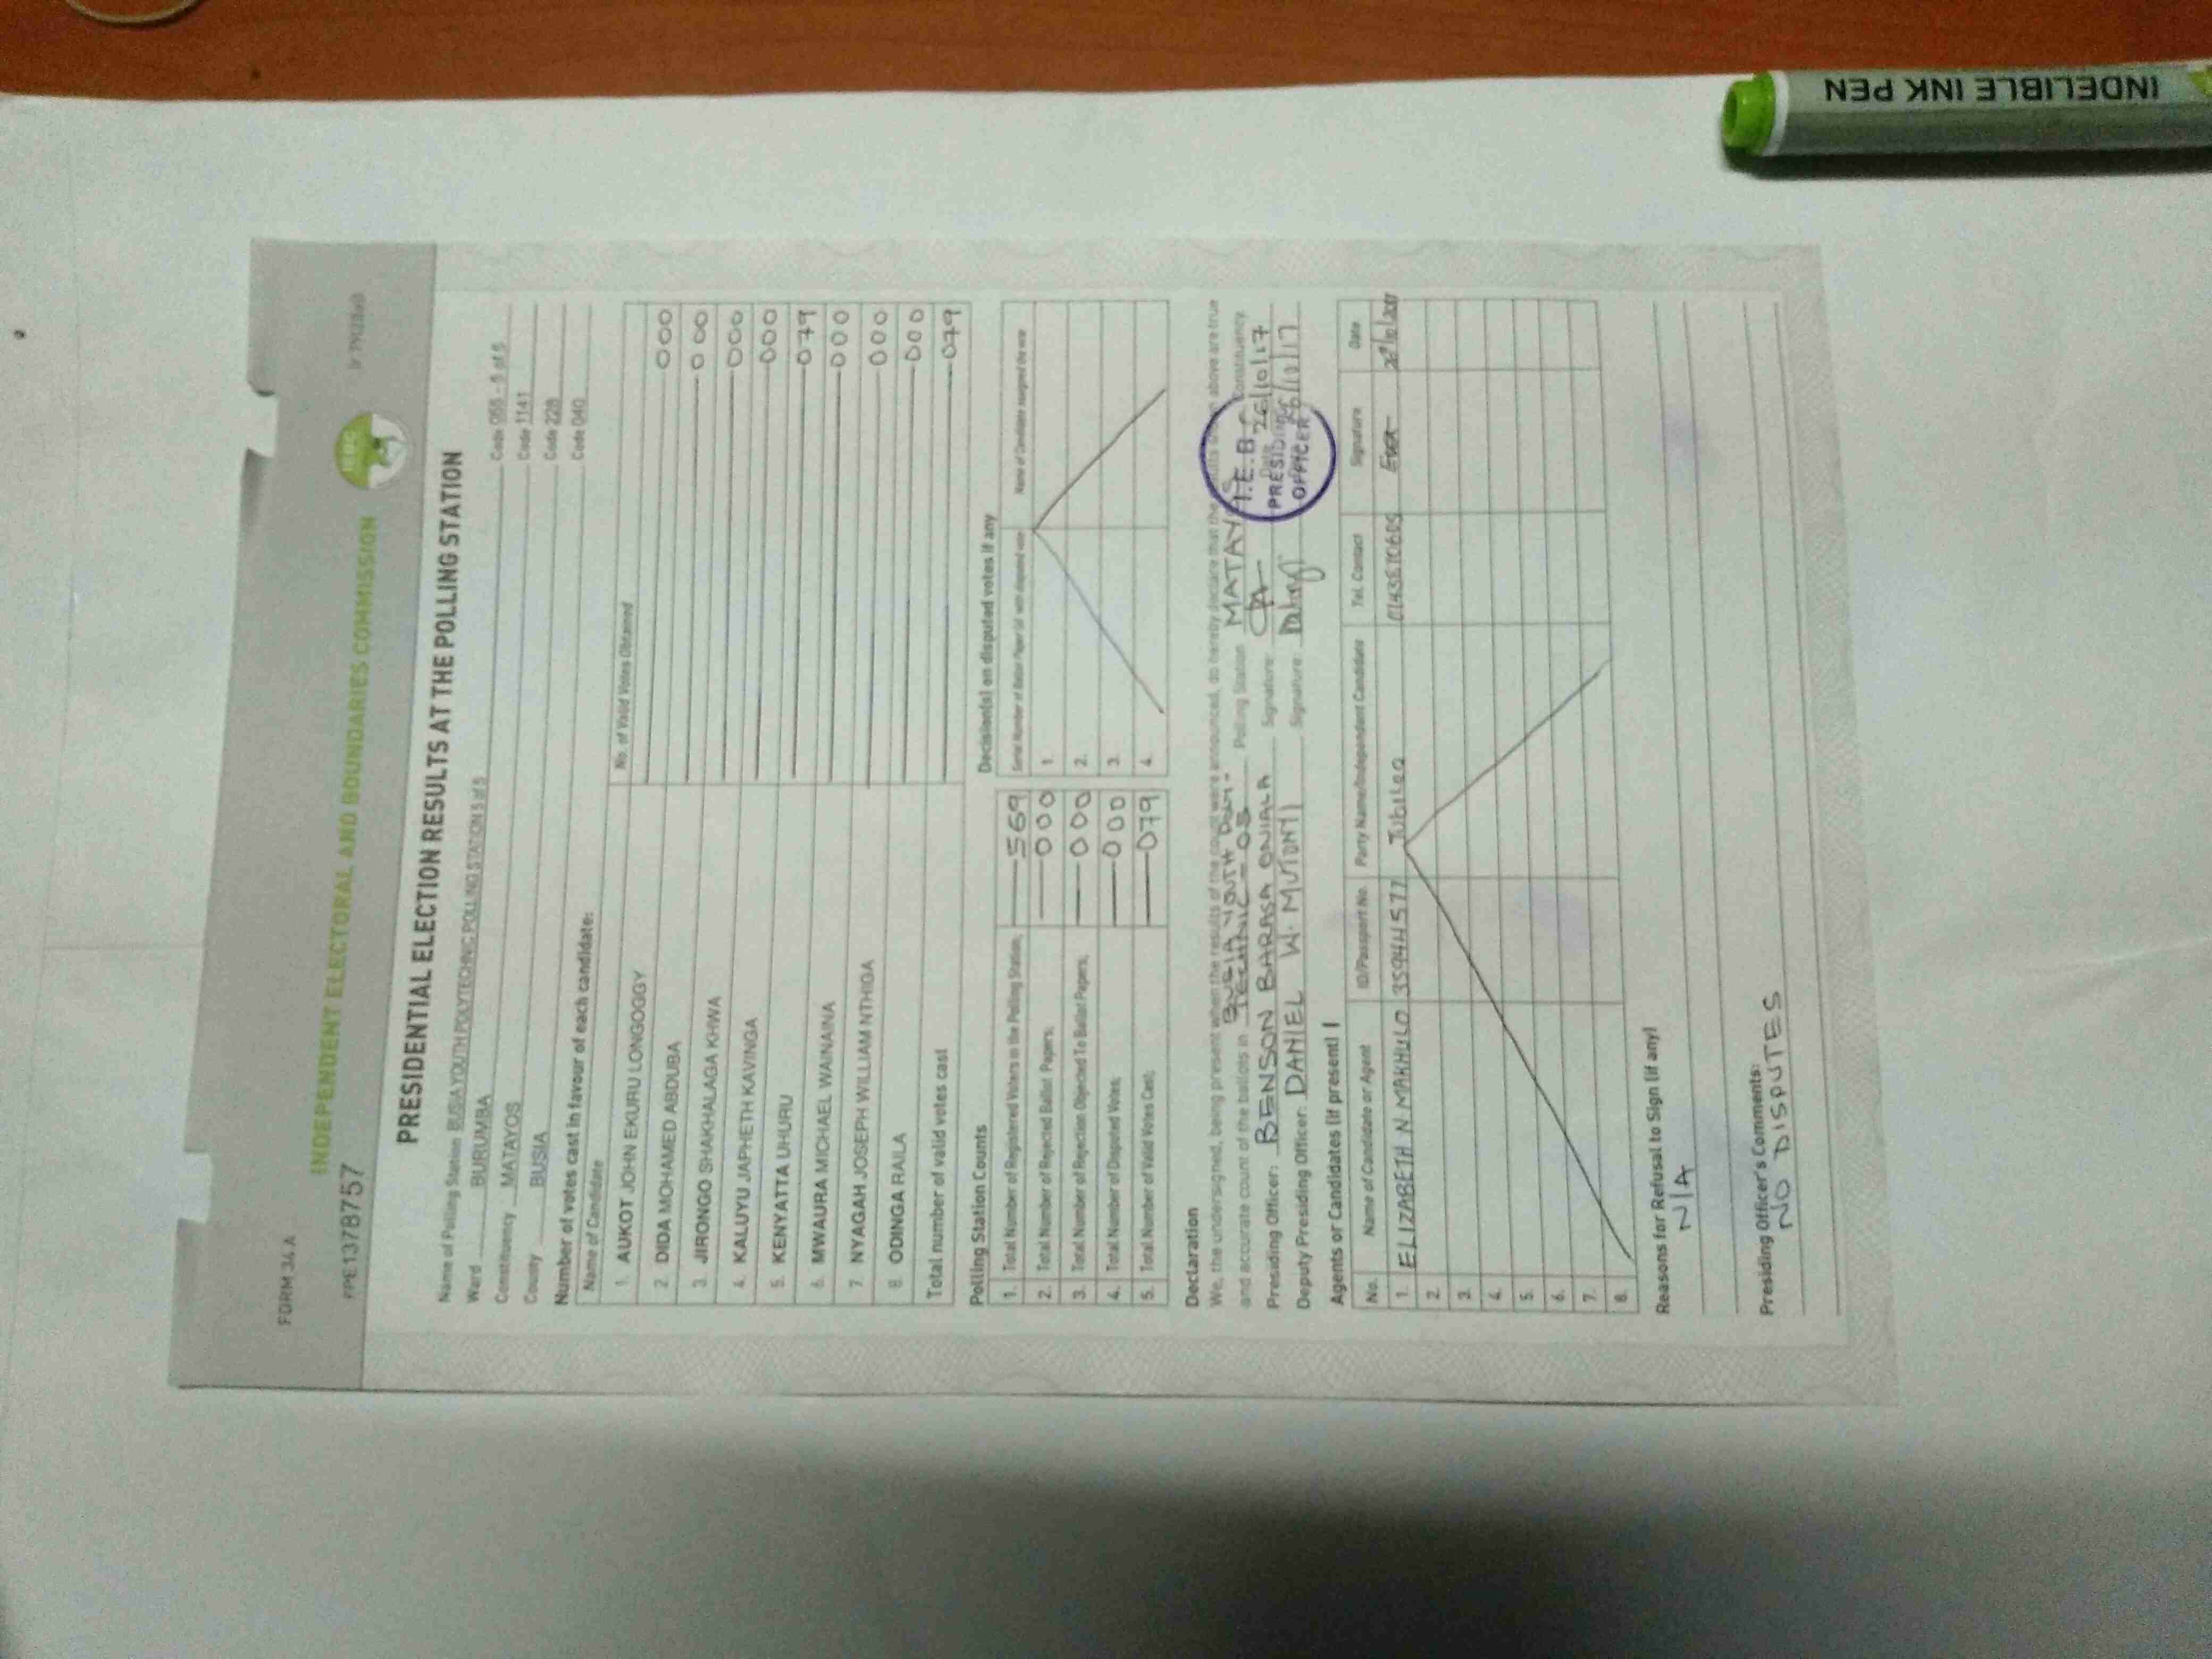 INDELIBLE INK PEN
FORM 34 A
INDEPENDENT ELECTORAL AND BOUNDARIES COMMISSION
IEBC
PPE 1378757
PRESIDENTIAL ELECTION RESULTS AT THE POLLING STATION
Name of Polling Station BUSIA YOUTH POLYTECHNIC POLLING STATION 5 of 5 Code 055 - 5 of 5
Ward BURUMBA Code 1141
Constituency MATAYOS Code 228
County BUSIA Code 040
Number of votes cast in favour of each candidate:
Name of Candidate No. of Valid Votes Obtained
1. AUKOT JOHN EKURU LONGOGGY 000
2. DIDA MOHAMED ABDUBA 000
3. JIRONGO SHAKHALAGA KHWA 000
4. KALUYU JAPHETH KAVINGA 000
5. KENYATTA UHURU 079
6. MWAURA MICHAEL WAINAINA 000
7. NYAGAH JOSEPH WILLIAM NTHIGA 000
8. ODINGA RAILA 000
Total number of valid votes cast 079
Polling Station Counts
1. Total Number of Registered Voters in the Polling Station; 569
2. Total Number of Rejected Ballot Papers; 000
3. Total Number of Rejection Objected To Ballot Papers; 000
4. Total Number of Disputed Votes; 000
5. Total Number of Valid Votes Cast; 079
Decision(s) on disputed votes if any
Serial Number of Ballot Paper (s) with disputed vote Name of Candidate assigned the vote
1.
2.
3.
4.
Declaration
We, the undersigned, being present when the results of the count were announced, do hereby declare that the results shown above are true
and accurate count of the ballots in BUSIA YOUTH POLY- TECHNIC - 05 Polling Station MATAYOS Constituency.
Presiding Officer: BENSON BARASA ONJALA Signature: Date 26/10/17
Deputy Presiding Officer: DANIEL W. MUTONYI Signature: 26/10/17
I.E.B.C
PRESIDING
OFFICER
Agents or Candidates (if present)
No. Name of Candidate or Agent ID/Passport No. Party Name/Independent Candidate Tel. Contact Signature Date
1. ELIZABETH N. MAKHULO 35944577 Jubilee
2.
3.
4.
5.
6.
7.
8.
Reasons for Refusal to Sign (if any)
N/A
Presiding Officer's Comments:
NO DISPUTES